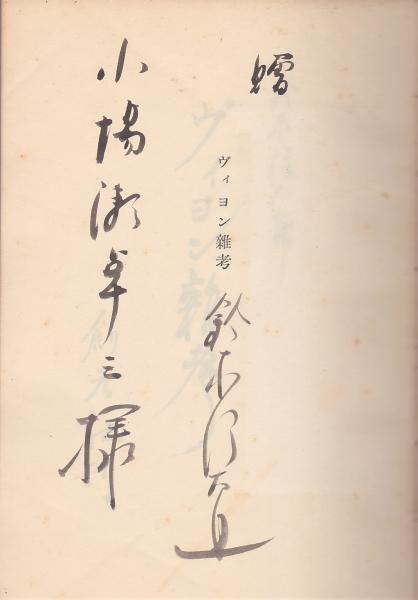 贈
ヴィヨン雜考
鈴木信太郎
小場瀬卓三様